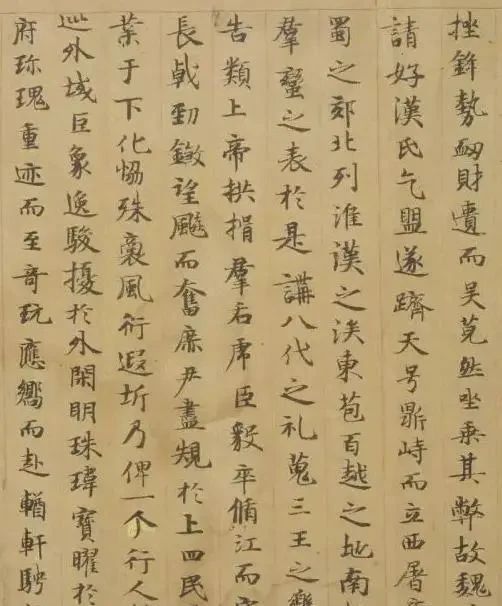 挫鋒勢衂財遺而吴莞然坐乘其弊故魏
請好漢氏乞盟遂躋天号鼎峙而立西屠
蜀之郊北列淮漢之涘東苞百越之地南
羣蠻之表於是講八代之礼蒐三王之樂
告類上帝拱揖羣后虎臣毅卒脩江而守
長戟勁鎩望飈而奮庶尹盡規於上四民
業于下化恊殊裔風衍遐圻乃俾一介行人
巡外域巨象逸駿擾於外閑明珠瑋寶曜於
府珎瑰重迹而至奇玩應嚮而赴輶軒騁